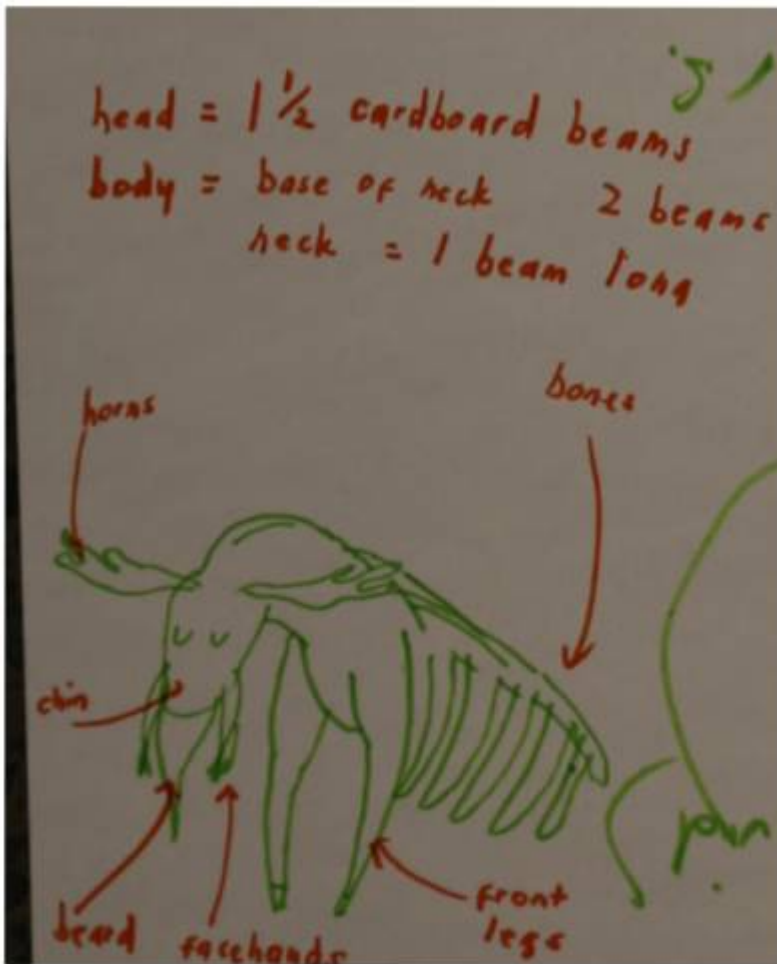 head = 1 1/2 cardboard beams
body = base of neck 2 beams
neck = 1 beam long
horns
bones
chin
beard
facehands
front
legs